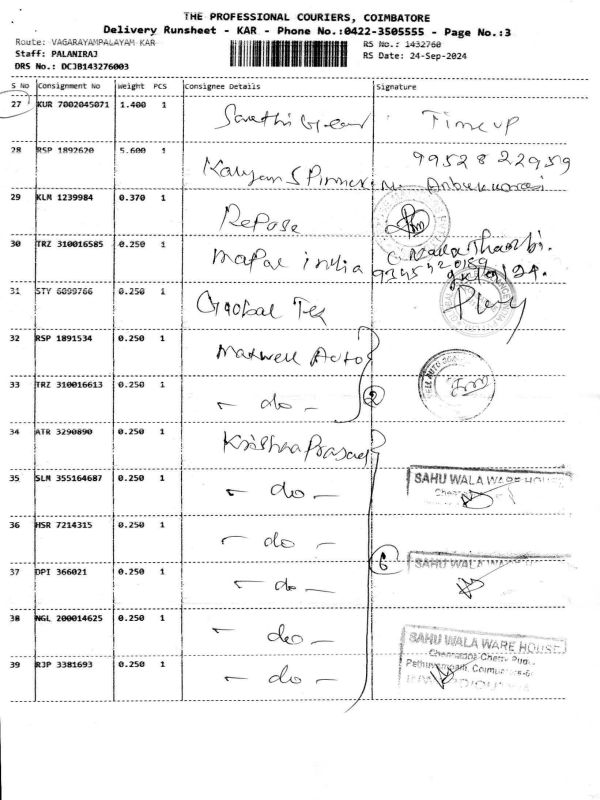 THE PROFESSIONAL COURIERS, COIMBATORE
Delivery Runsheet - KAR - Phone No.:0422-3505555 - Page No.:3
Route: VAGARAYAMPALAYAM KAR
RS No.: 1432760
Staff: PALANIRAJ
RS Date: 24-Sep-2024
DRS No.: DCJB143276003
S No Consignment No Weight PCS Consignee Details Signature
27 KUR 7002045071 1.400 1 Time up
28 RSP 1892620 5.600 1 Kalyani 99528 22959
29 KLM 1239984 0.370 1 Repose
30 TRZ 310016585 0.250 1 mapal india
31 STY 6099766 0.250 1 Global Tek
32 RSP 1891534 0.250 1 Maxwell Auto
33 TRZ 310016613 0.250 1 - do - 2
34 ATR 3290890 0.250 1 Krishna Prasad
35 SLM 355164687 0.250 1 - do - SAHU WALA WARE HOUSE
36 HSR 7214315 0.250 1 - do -
6
37 DPI 366021 0.250 1 - do - SAHU WALA
38 NGL 200014625 0.250 1 - do - SAHU WALA WARE HOUSE
39 RJP 3381693 0.250 1 - do -